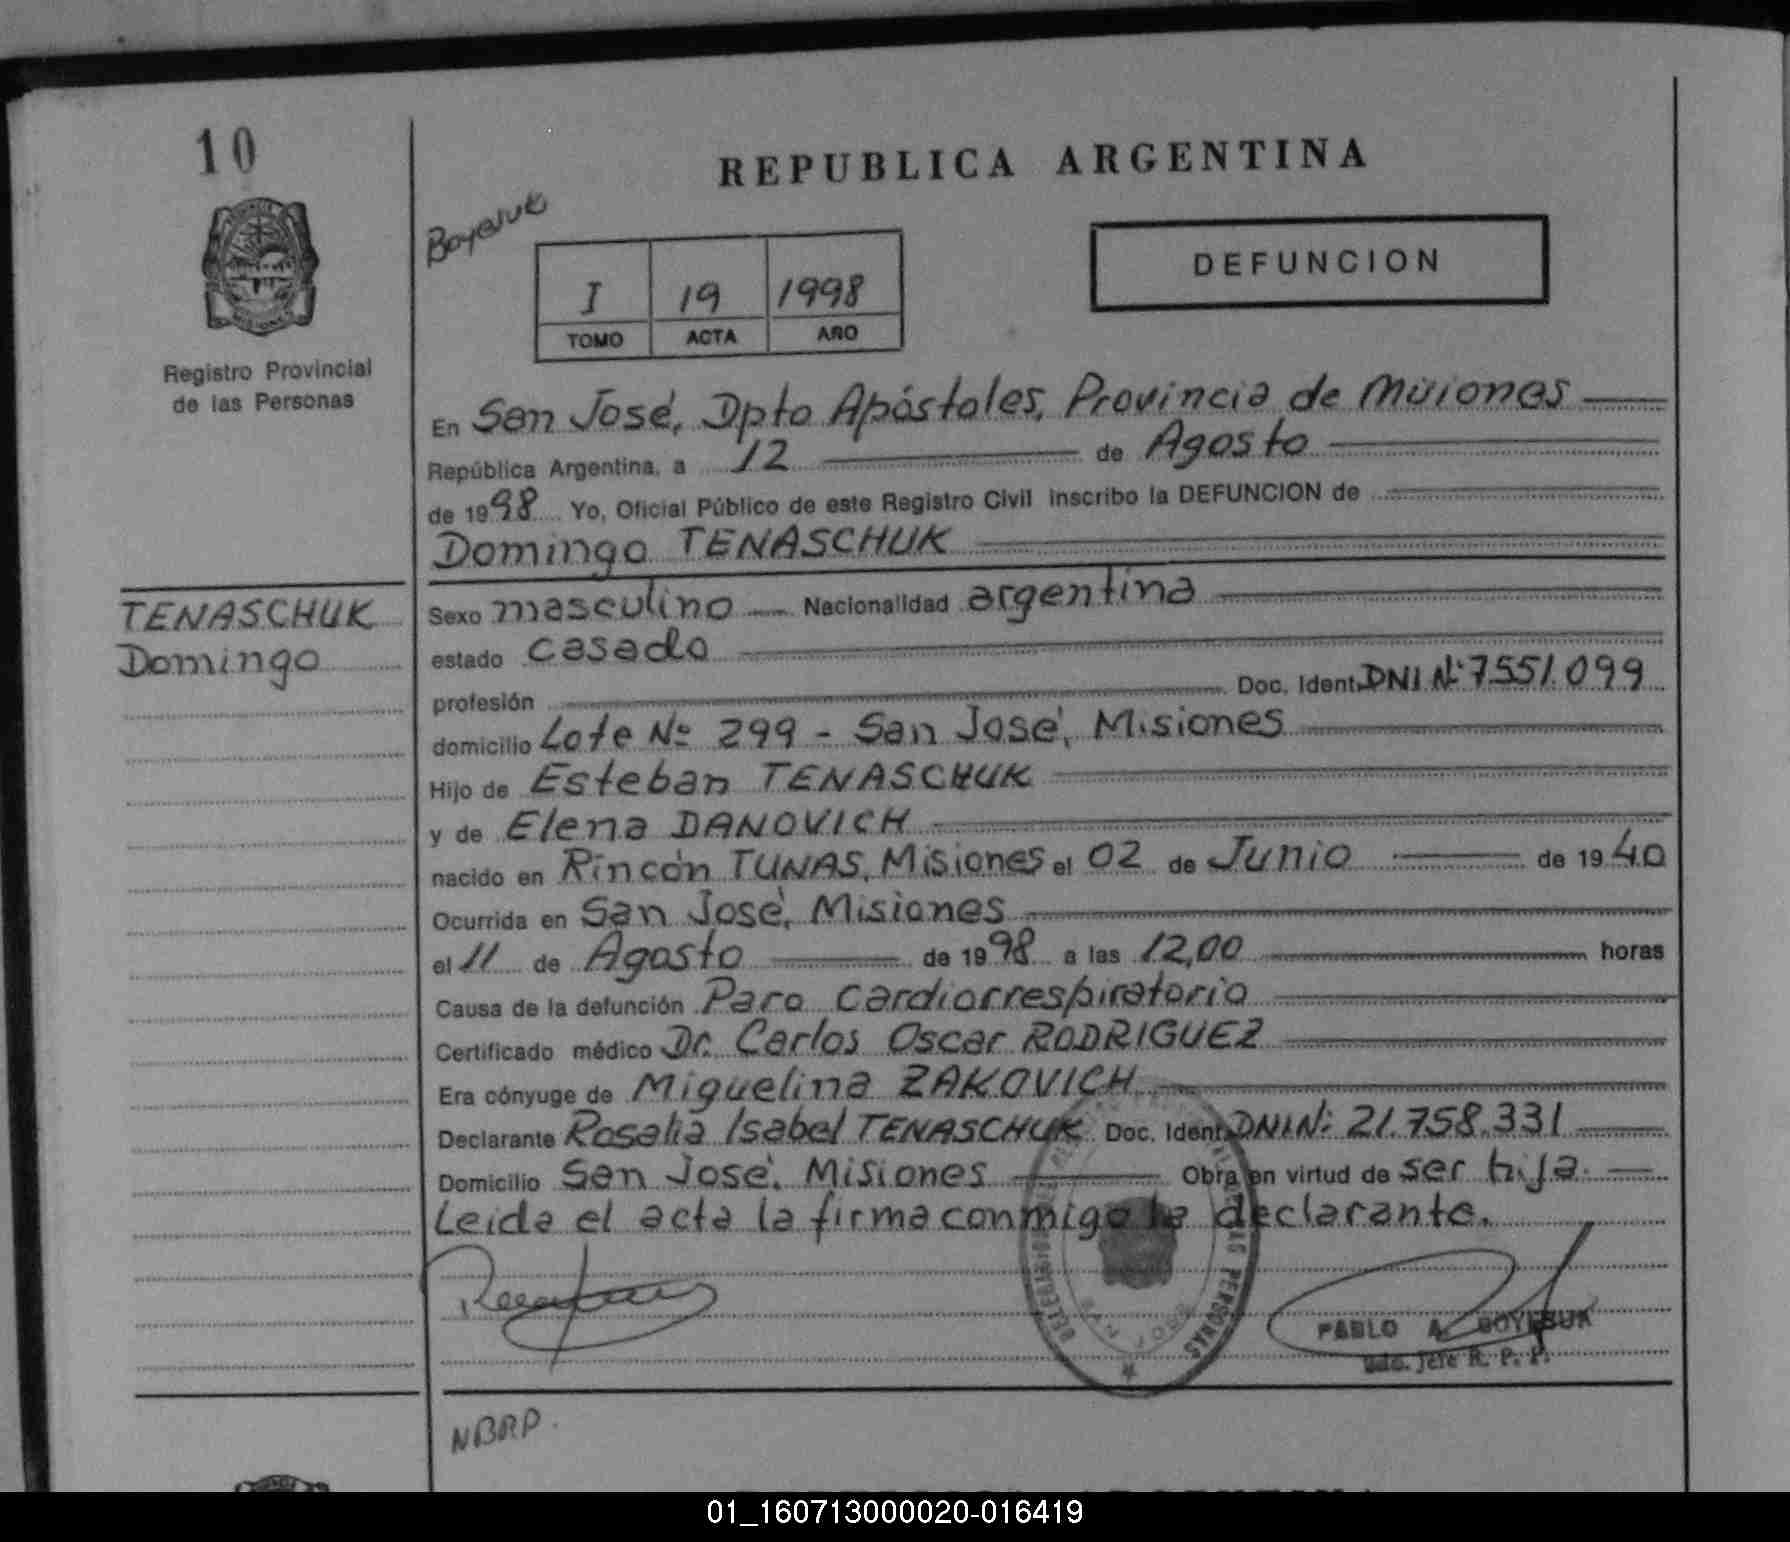 10
REPUBLICA ARGENTINA
Boyesuk
DEFUNCION
I 19 1998
TOMO ACTA AÑO
Registro Provincial
de las Personas
En San José, Dpto Apóstoles, Provincia de Misiones
República Argentina, a 12 de Agosto
de 1998 Yo, Oficial Público de este Registro Civil inscribo la DEFUNCION de
Domingo TENASCHUK
TENASCHUK
Domingo
Sexo masculino Nacionalidad argentina
estado casado
profesión Doc. Ident. DNI Nº 7.551.099
domicilio Lote Nº 299 - San José, Misiones
Hijo de Esteban TENASCHUK
y de Elena DANOVICH
nacido en Rincón TUNAS, Misiones el 02 de Junio de 1940
Ocurrida en San José, Misiones
el 11 de Agosto de 1998 a las 12,00 horas
Causa de la defunción Paro Cardiorrespiratorio
Certificado médico Dr. Carlos Oscar RODRIGUEZ
Era cónyuge de Miguelina ZAKOVICH
Declarante Rosalia Isabel TENASCHUK Doc. Ident. DNI Nº: 21.758.331
Domicilio San José, Misiones Obra en virtud de ser hija.
Leida el acta la firma conmigo la declarante.
PABLO A. BOYESUK
Jefe R. P. P.
NBRP.
01_160713000020-016419